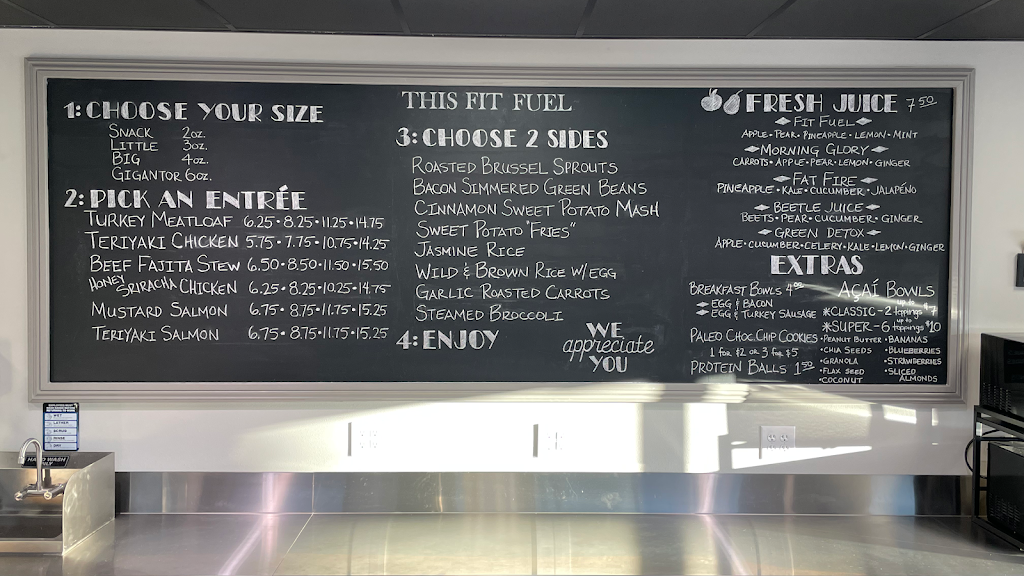 1: CHOOSE YOUR SIZE
SNACK 2oz.
LITTLE 3oz.
BIG 4oz.
GIGANTOR 6oz.
2: PICK AN ENTRÉE
TURKEY MEATLOAF 6.25 • 8.25 • 11.25 • 14.75
TERIYAKI CHICKEN 5.75 • 7.75 • 10.75 • 14.25
BEEF FAJITA STEW 6.50 • 8.50 • 11.50 • 15.50
HONEY SRIRACHA CHICKEN 6.25 • 8.25 • 10.25 • 14.75
MUSTARD SALMON 6.75 • 8.75 • 11.75 • 15.25
TERIYAKI SALMON 6.75 • 8.75 • 11.75 • 15.25
THIS FIT FUEL
3: CHOOSE 2 SIDES
ROASTED BRUSSEL SPROUTS
BACON SIMMERED GREEN BEANS
CINNAMON SWEET POTATO MASH
SWEET POTATO "FRIES"
JASMINE RICE
WILD & BROWN RICE W/EGG
GARLIC ROASTED CARROTS
STEAMED BROCCOLI
4: ENJOY
WE
appreciate
YOU
FRESH JUICE 7.50
FIT FUEL
APPLE • PEAR • PINEAPPLE • LEMON • MINT
MORNING GLORY
CARROTS • APPLE • PEAR • LEMON • GINGER
FAT FIRE
PINEAPPLE • KALE • CUCUMBER • JALAPEÑO
BEETLE JUICE
BEETS • PEAR • CUCUMBER • GINGER
GREEN DETOX
APPLE • CUCUMBER • CELERY • KALE • LEMON • GINGER
EXTRAS
BREAKFAST BOWLS
EGG & BACON
EGG & TURKEY SAUSAGE
PALEO CHOC. CHIP COOKIES
1 for $2 OR 3 for $5
PROTEIN BALLS 1.50
AÇAÍ BOWLS
up to
*CLASSIC - 2 toppings $7
up to
*SUPER - 6 toppings $10
• PEANUT BUTTER • BANANAS
• CHIA SEEDS • BLUEBERRIES
• GRANOLA • STRAWBERRIES
• FLAX SEED • SLICED
• COCONUT ALMONDS
HAND WASH
ONLY